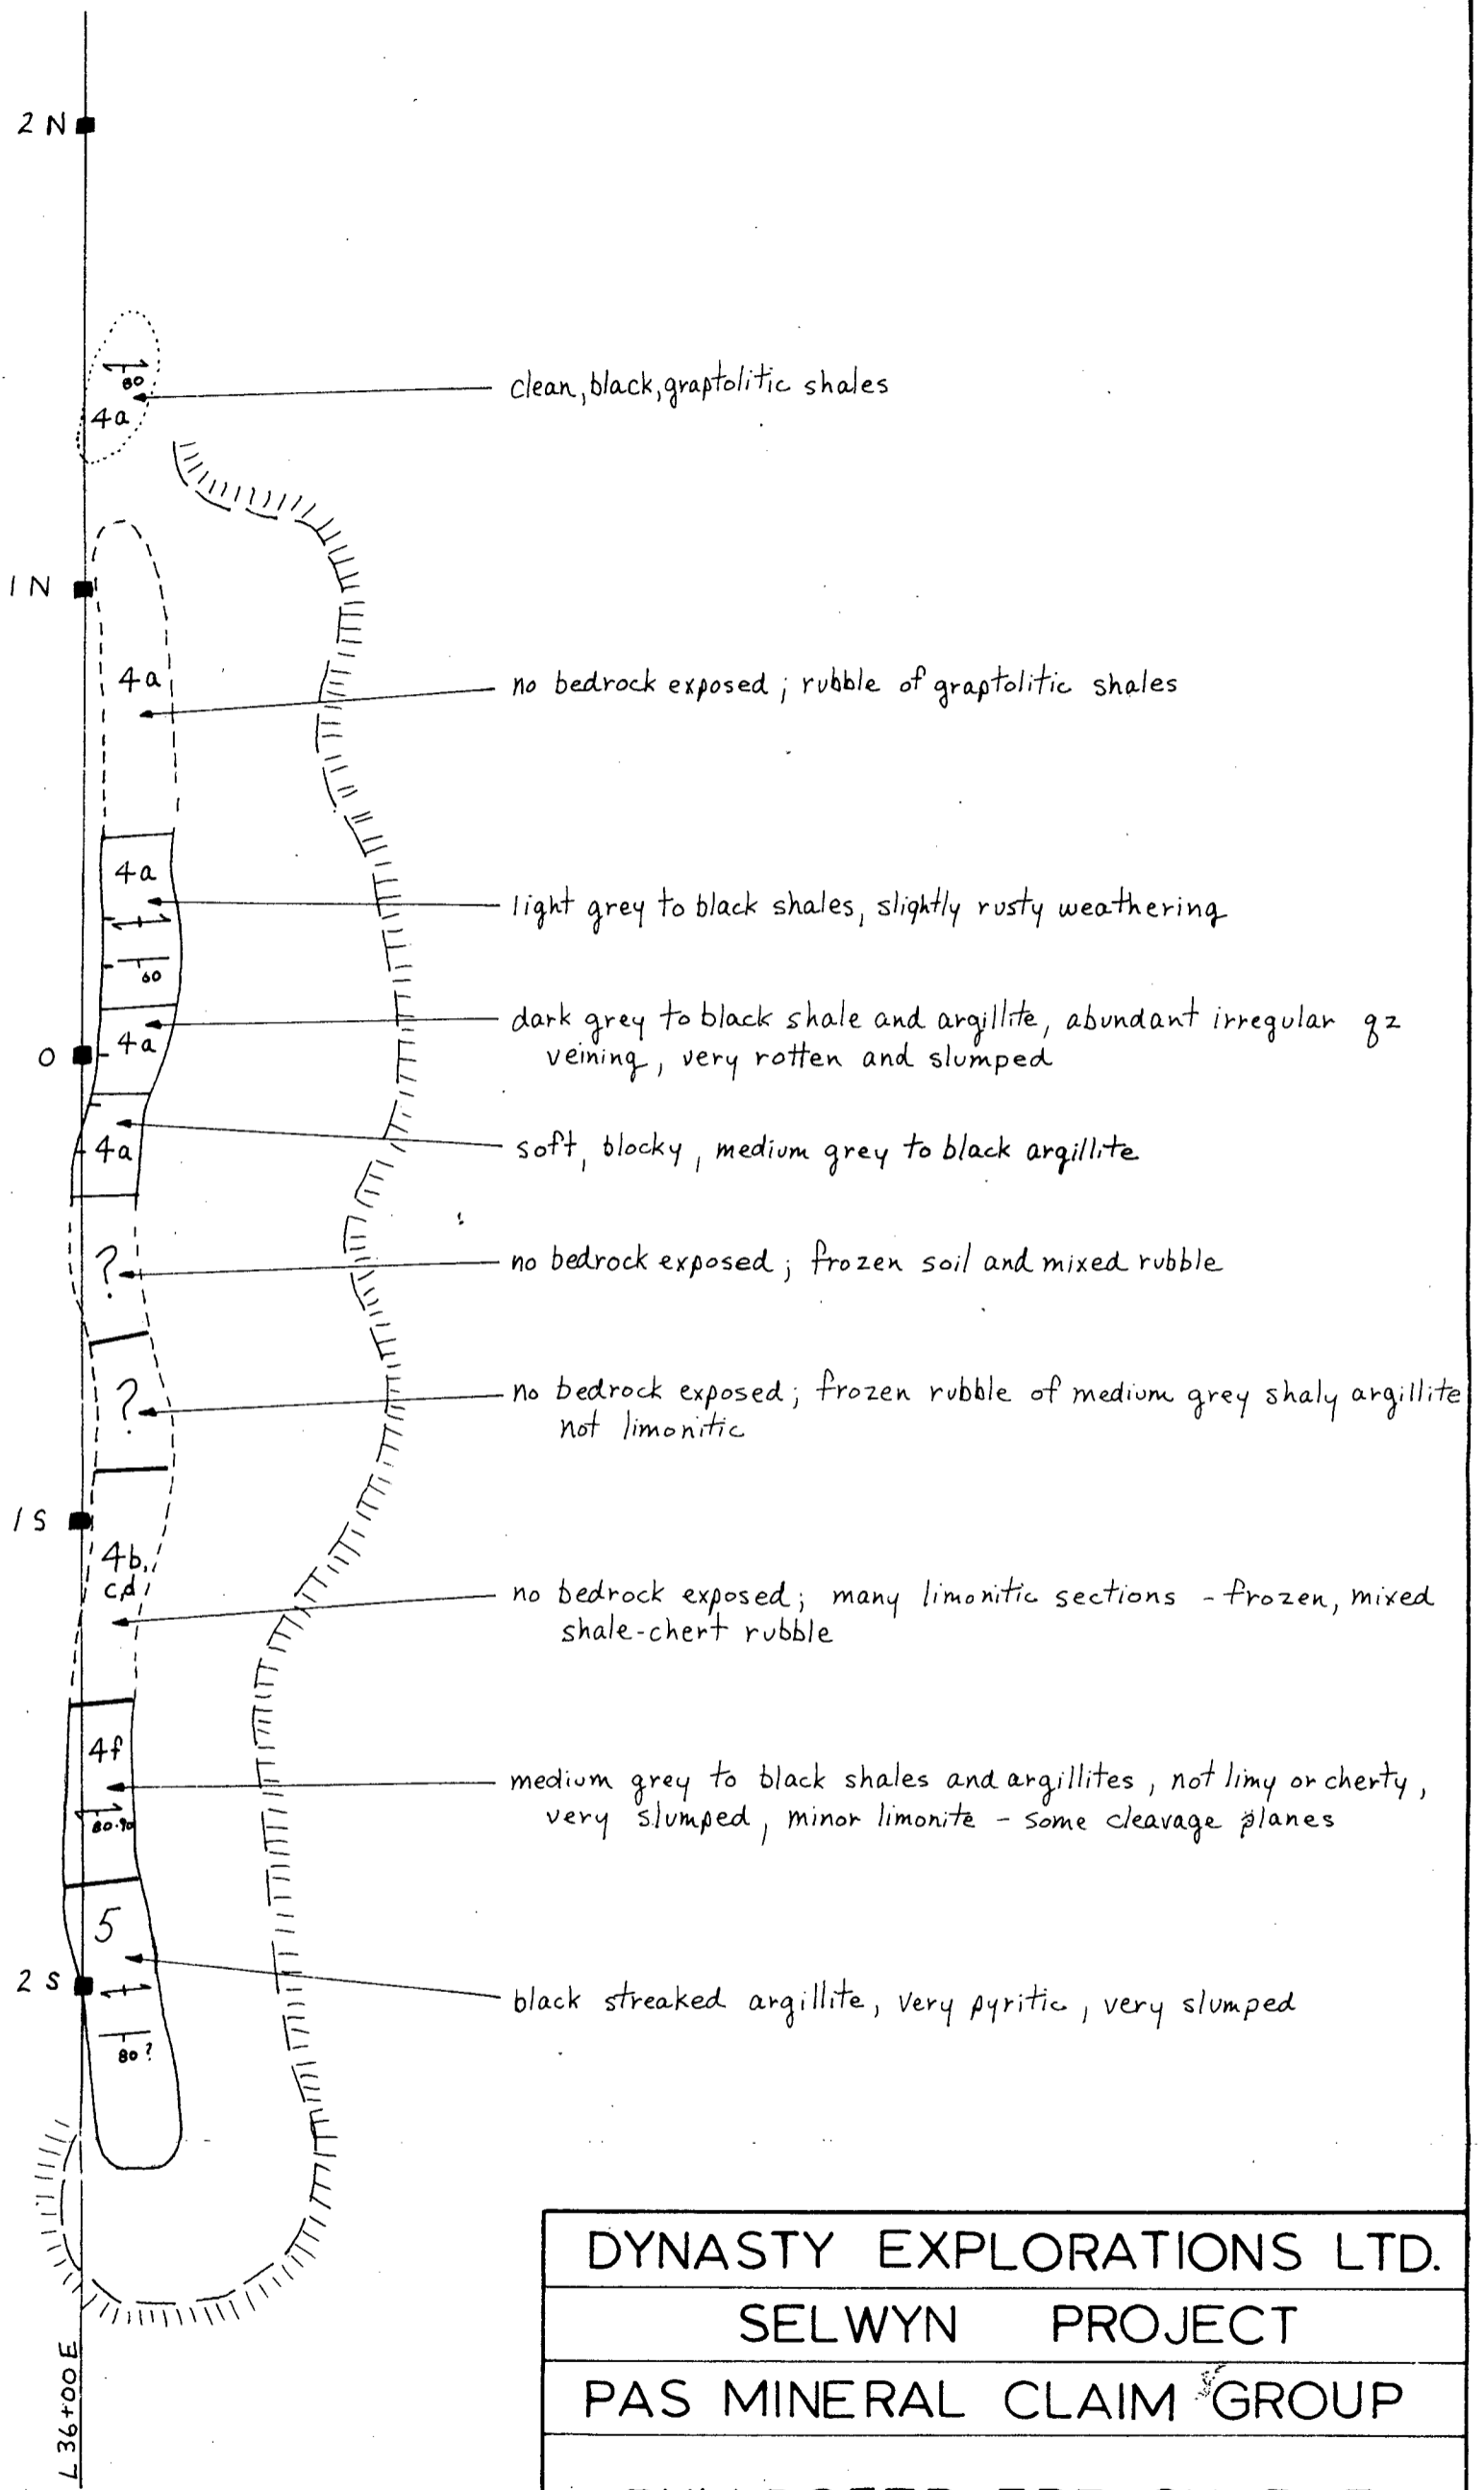 2 N
80
4a
clean, black, graptolitic shales
1 N
4a
no bedrock exposed; rubble of graptolitic shales
4a
light grey to black shales, slightly rusty weathering
60
4a
dark grey to black shale and argillite, abundant irregular qz
veining, very rotten and slumped
0
4a
soft, blocky, medium grey to black argillite
?
no bedrock exposed; frozen soil and mixed rubble
?
no bedrock exposed; frozen rubble of medium grey shaly argillite
not limonitic
1 S
4b,
c,d
no bedrock exposed; many limonitic sections - frozen, mixed
shale-chert rubble
4f
medium grey to black shales and argillites, not limy or cherty,
very slumped, minor limonite - some cleavage planes
80-90
5
2 S
black streaked argillite, very pyritic, very slumped
80?
L 36+00E
DYNASTY EXPLORATIONS LTD.
SELWYN PROJECT
PAS MINERAL CLAIM GROUP